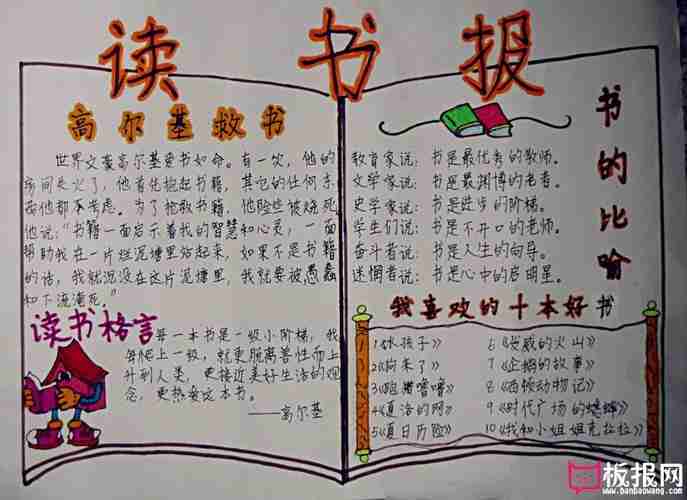 读书报
高尔基救书
世界文豪高尔基爱书如命。有一次，他的
房间失火了，他首先抱起书籍，其它的任何东
西他都不考虑。为了抢救书籍，他险些被烧死。
他说："书籍一面启示着我的智慧和心灵，一面
帮助我在一片烂泥塘里站起来，如果不是书籍
的话，我就沉没在这片泥塘里，我就要被愚蠢
和下流淹死。"
读书格言
每一本书是一级小阶梯，我
每爬上一级，就更脱离兽性而上
升到人类，更接近美好生活的观
念，更热爱这本书。
——高尔基
书的比喻
教育家说：书是最优秀的教师。
文学家说：书是最渊博的老者。
史学家说：书是进步的阶梯。
学生们说：书是不开口的老师。
奋斗者说：书是人生的向导。
迷惘者说：书是心中的启明星。
我喜欢的十本好书
1《水孩子》
2《狗来了》
3《咕噜噜噜》
4《夏洛的网》
5《夏日历险》
6《发威的火山》
7《企鹅的故事》
8《西顿动物记》
9《时代广场的蟋蟀》
10《我和小姐姐克拉拉》
板报网
www.banbaowang.com